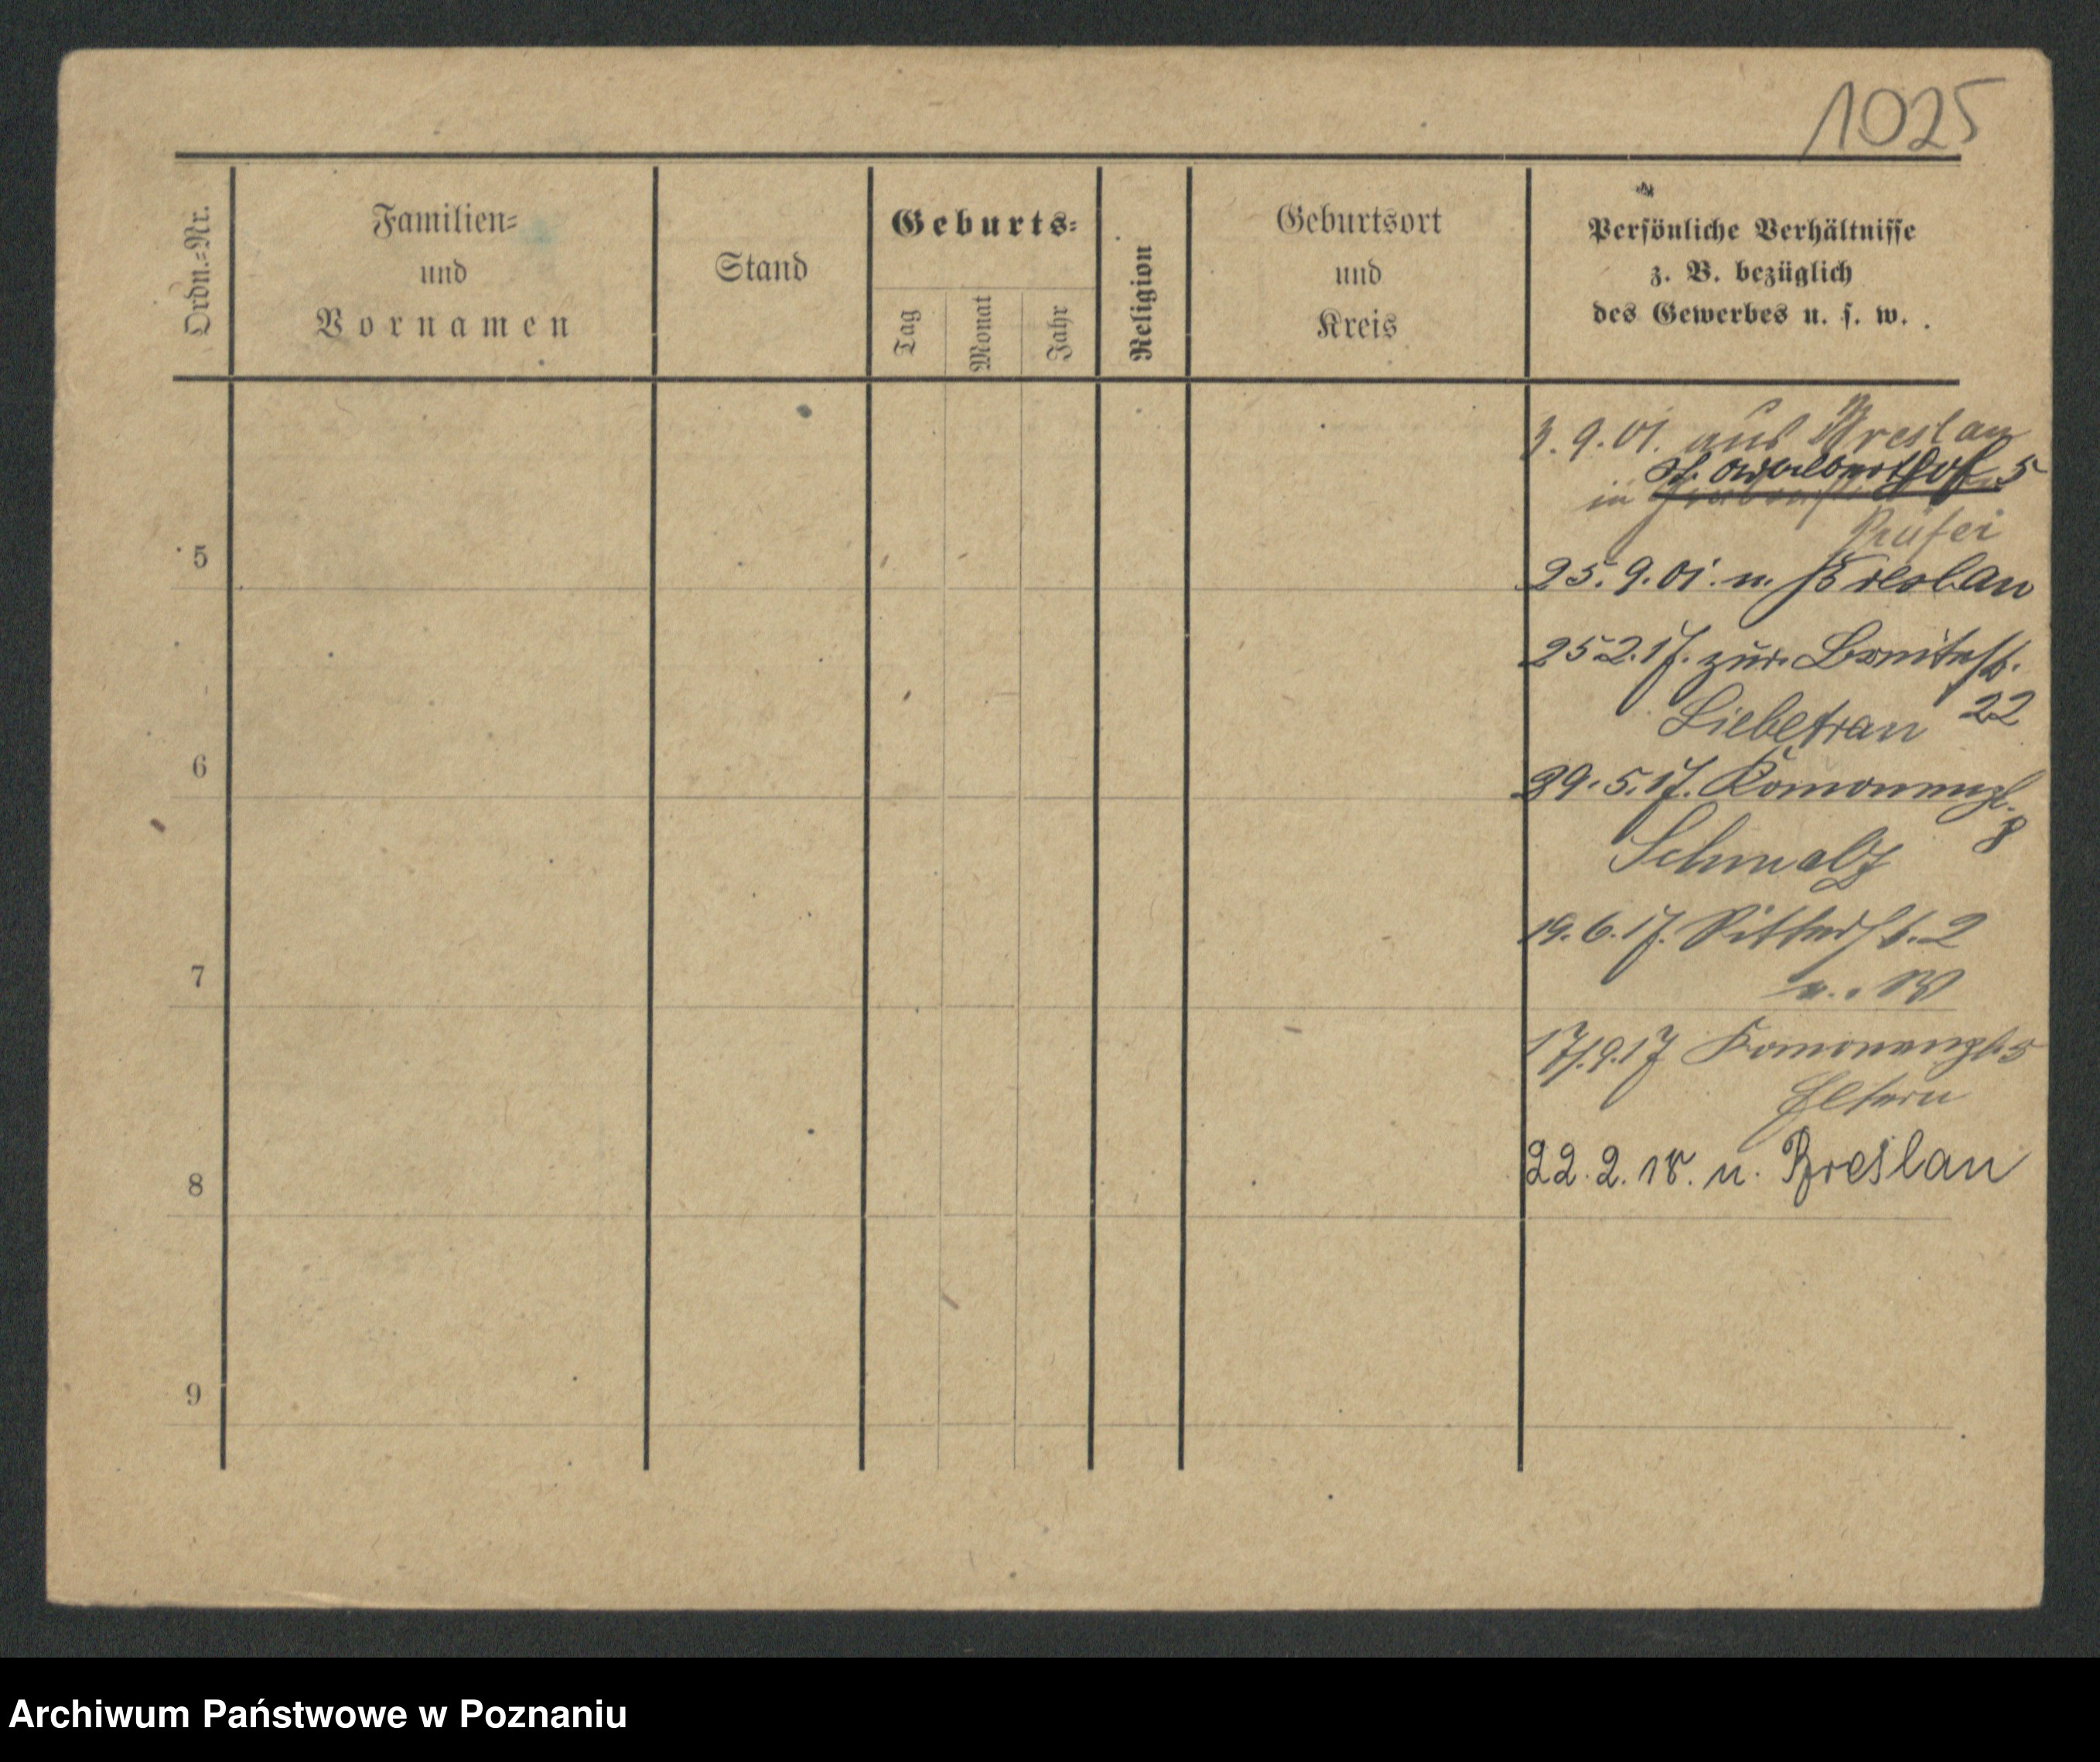 1025
Ordn.-Nr.
Familien-
und
Vornamen
Stand
Geburts-
Tag
Monat
Jahr
Religion
Geburtsort
und
Kreis
Persönliche Verhältnisse
z. B. bezüglich
des Gewerbes u. s. w.
3.9.01. aus Breslau
5
in
5
25.9.01. n. Breslau
25 2.17.
22
6
29.5.17.
8
Schmalz
19.6.17. Ritterst. 2
7
17.9.17
5
Eltern
8
22.2.18. n. Breslau
9
Archiwum Państwowe w Poznaniu